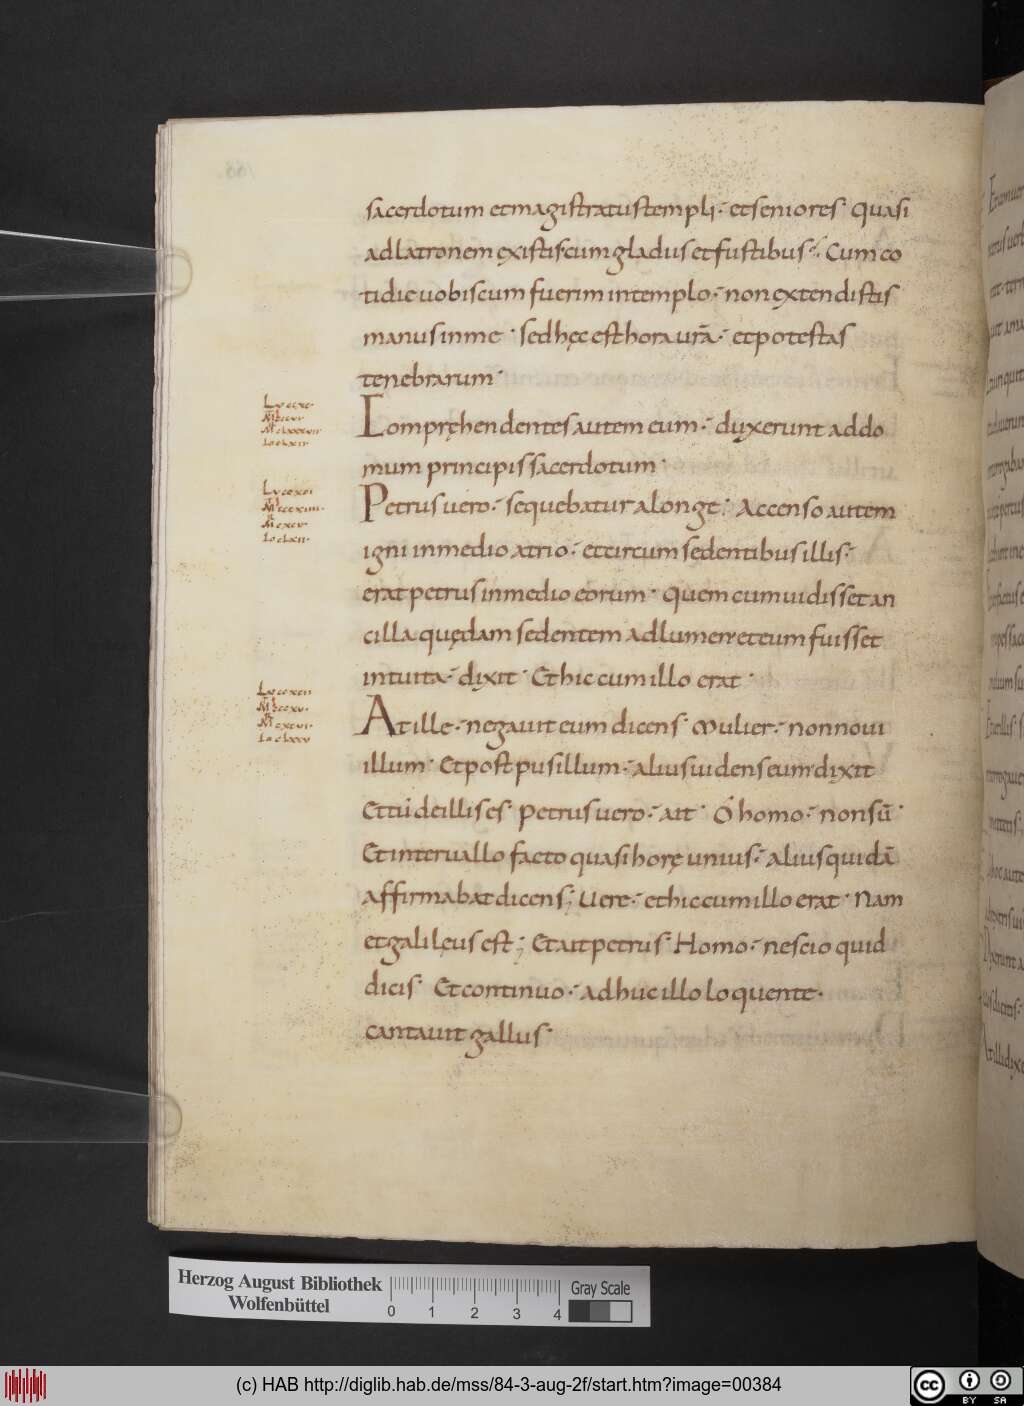 sacerdotum et magistratus templi · et seniores · Quasi
ad latronem existis cum gladiis et fustibus · Cum co
tidie uobiscum fuerim in templo · non extendistis
manus in me · sed hęc est hora urā · et potestas
tenebrarum ·
Comprehendentes autem eum · duxerunt ad do
mum principis sacerdotum ·
Petrus uero · sequebatur a longe · Accenso autem
igni in medio atrio · et circumsedentibus illis ·
erat petrus in medio eorum · Quem cum uidisset an
cilla quędam sedentem ad lumen et eum fuisset
intuita · dixit · Et hic cum illo erat ·
At ille · negauit eum dicens · Mulier · non noui
illum · Et post pusillum · alius uidens eum dixit
Et tu de illis es · Petrus uero · ait · O homo · non sū ·
Et interuallo facto quasi horę unius · alius quidā
affirmabat dicens ; Uere · et hic cum illo erat · Nam
et galileus est ; Et ait petrus · Homo · nescio quid
dicis · Et continuo · adhuc illo loquente ·
cantauit gallus ·
Herzog August Bibliothek
Wolfenbüttel
0 1 2 3 4
Gray Scale
(c) HAB http://diglib.hab.de/mss/84-3-aug-2f/start.htm?image=00384
cc BY SA